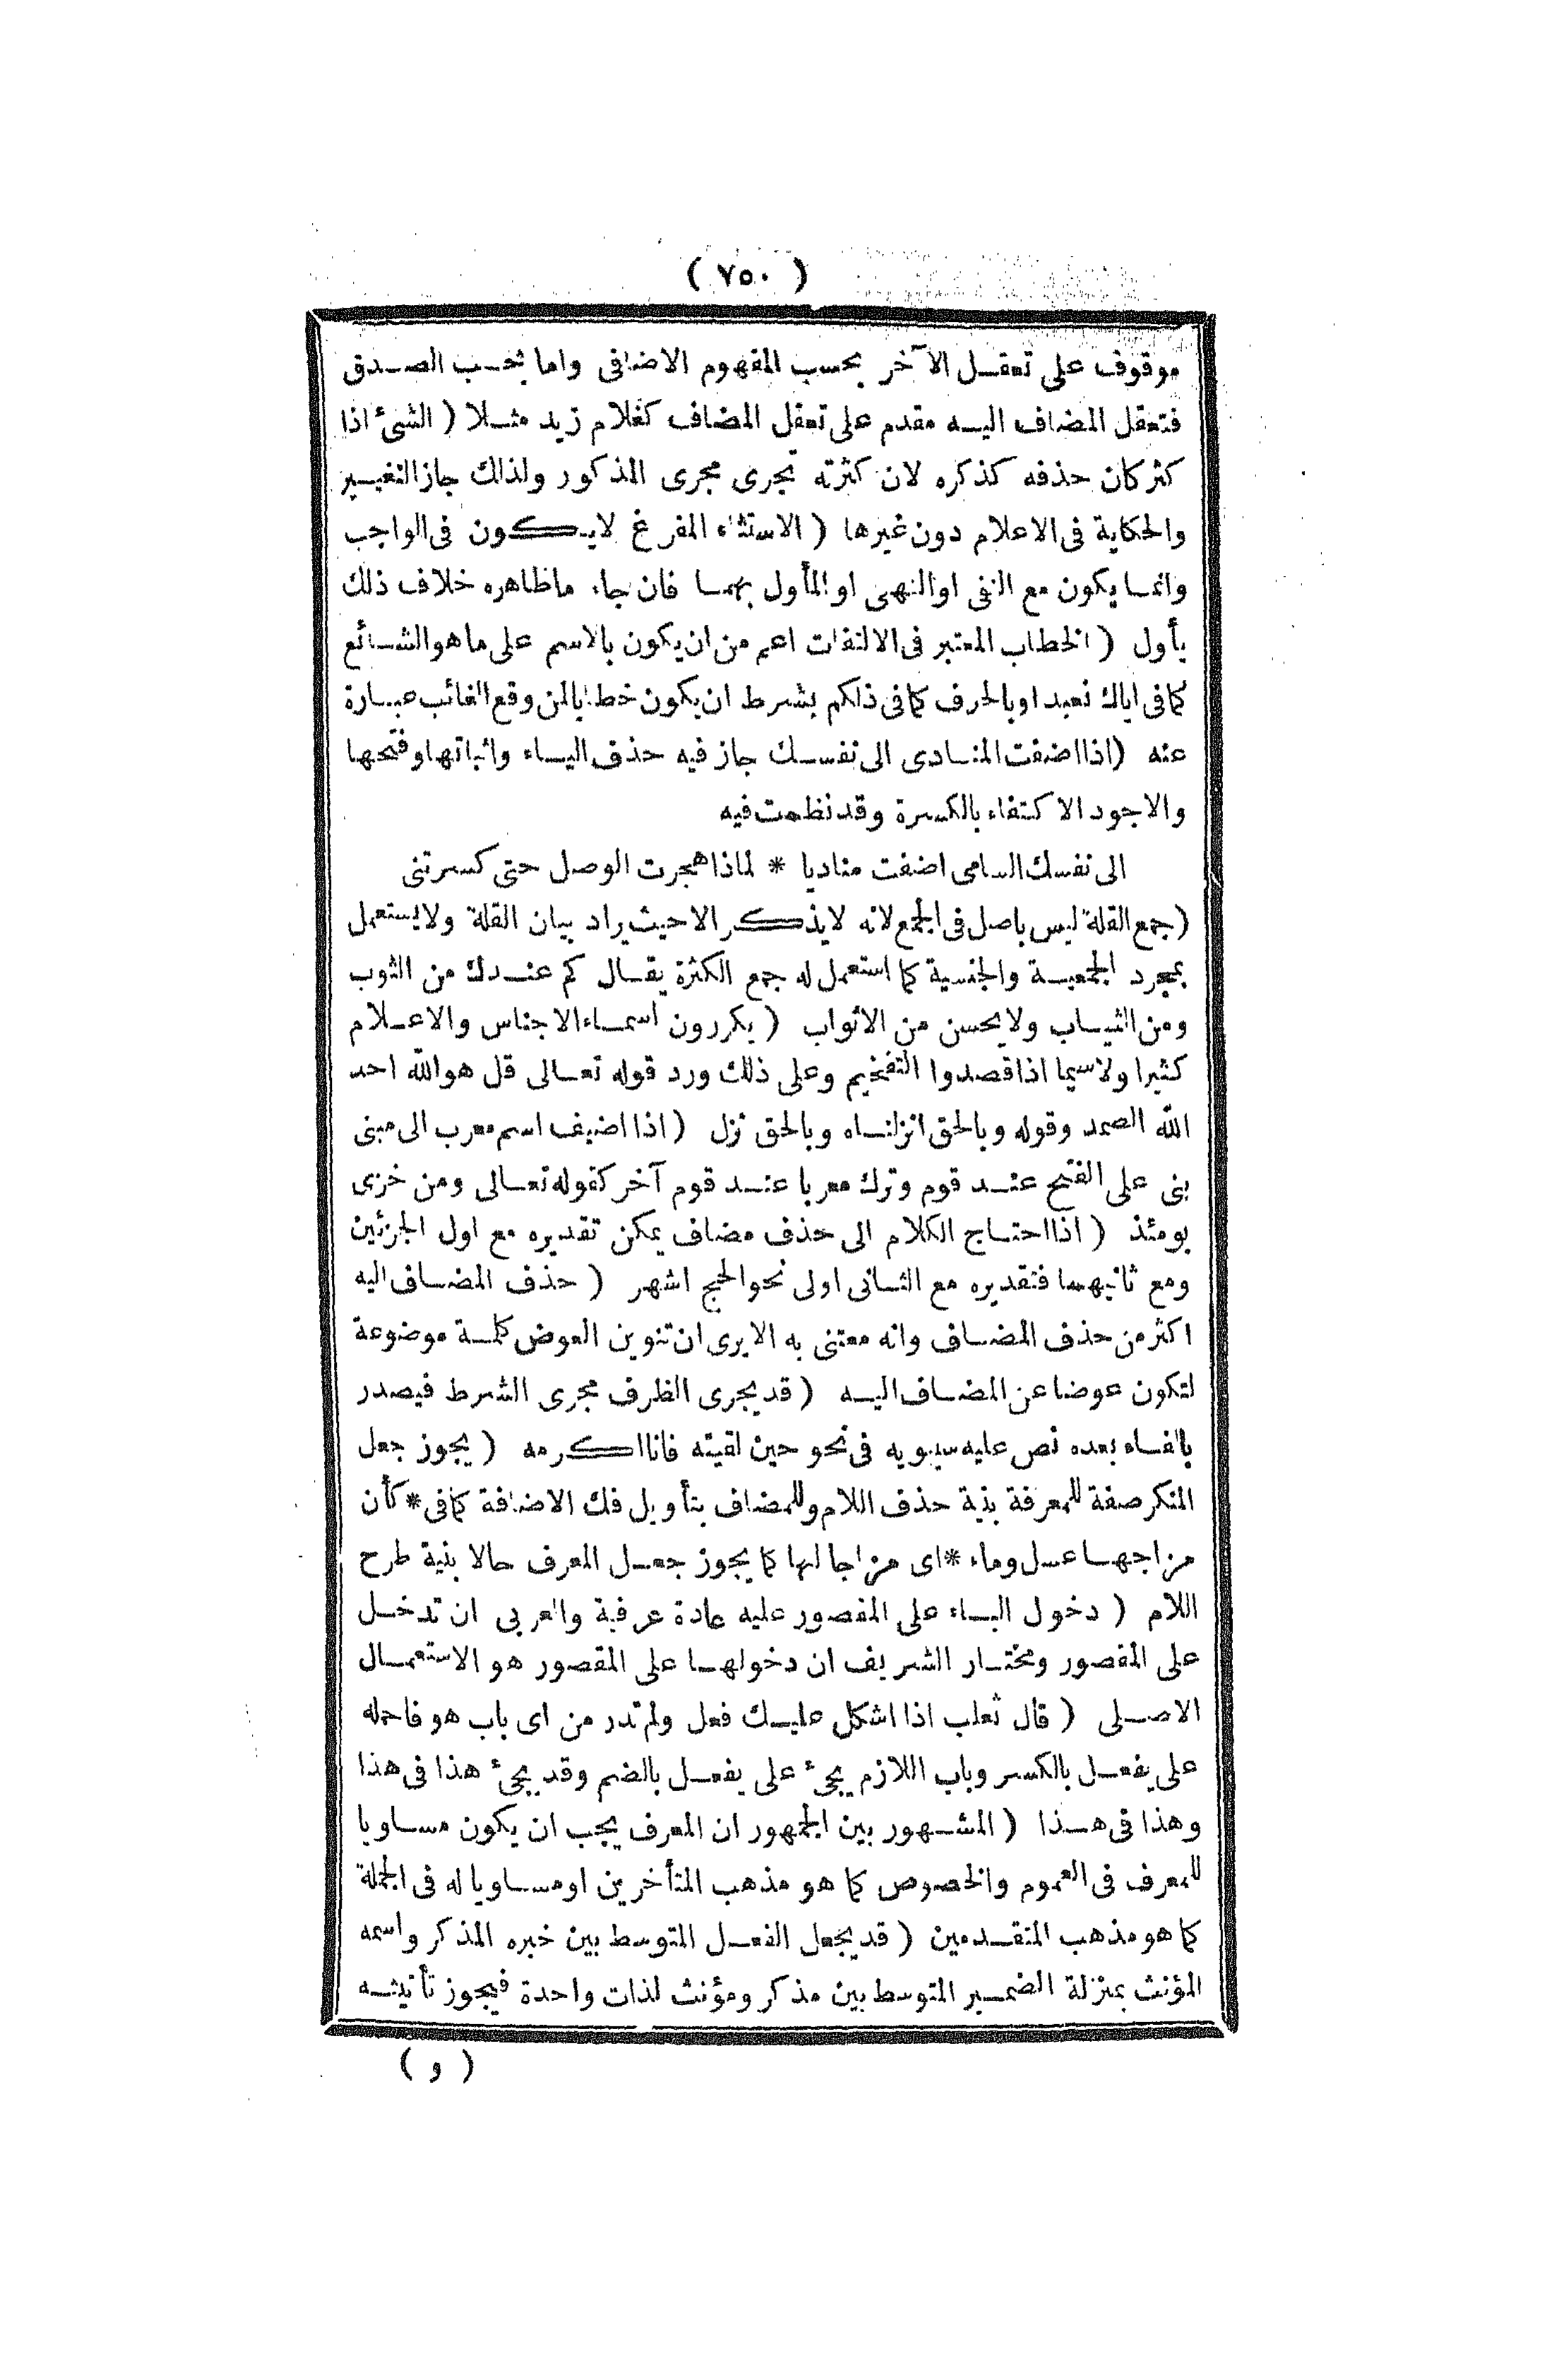 ( ٧٥٠ )
موقوف على تعقل الآخر بحسب المفهوم الاضافى واما بحسب الصدق
فتعقل المضاف اليه مقدم على تعقل المضاف كغلام زيد مثلا ( الشئ اذا
كثر كان حذفه كذكره لان كثرته تجرى مجرى المذكور ولذلك جاز التغيير
والحكاية فى الاعلام دون غيرها ( الاستثناء المفرغ لايكون فى الواجب
وانما يكون مع النفى او النهى او المأول بهما فان جاء ماظاهره خلاف ذلك
يأول ( الخطاب المعتبر فى الالتفات اعم من ان يكون بالاسم على ماهو الشائع
كما فى اياك نعبد او بالحرف كما فى ذلكم بشرط ان يكون خطابا لمن وقع الغائب عبارة
عنه ( اذا اضفت المنادى الى نفسك جاز فيه حذف الياء واثباتها وفتحها
والاجود الاكتفاء بالكسرة وقد نظمت فيه
الى نفسك السامى اضفت مناديا * لماذا هجرت الوصل حتى كسرتنى
( جمع القلة ليس باصل فى الجمع لانه لايذكر الا حيث يراد بيان القلة ولايستعمل
بمجرد الجمعية والجنسية كما استعمل له جمع الكثرة يقال كم عندك من الثوب
ومن الثياب ولايحسن من الاثواب ( يكررون اسماء الاجناس والاعلام
كثيرا ولاسيما اذا قصدوا التفخيم وعلى ذلك ورد قوله تعالى قل هو الله احد
الله الصمد وقوله وبالحق انزلناه وبالحق نزل ( اذا اضيف اسم معرب الى مبنى
بنى على الفتح عند قوم وترك معربا عند قوم آخر كقوله تعالى ومن خزى
يومئذ ( اذا احتاج الكلام الى حذف مضاف يمكن تقديره مع اول الجزئين
ومع ثانيهما فتقديره مع الثانى اولى نحو الحج اشهر ( حذف المضاف اليه
اكثر من حذف المضاف وانه معتنى به الايرى ان تنوين العوض كلمة موضوعة
لتكون عوضا عن المضاف اليه ( قد يجرى الظرف مجرى الشرط فيصدر
بالفاء بعده نص عليه سيبويه فى نحو حين لقيته فانا اكرمه ( يجوز جعل
المنكر صفة للمعرفة بنية حذف اللام وللمضاف بتأويل فك الاضافة كما فى * كأن
مزاجها عسل وماء * اى مزاجا لها كما يجوز جعل المعرف حالا بنية طرح
اللام ( دخول الباء على المقصور عليه عادة عرفية والعربى ان تدخل
على المقصور ومختار الشريف ان دخولها على المقصور هو الاستعمال
الاصلى ( قال ثعلب اذا اشكل عليك فعل ولم تدر من اى باب هو فاحمله
على يفعل بالكسر وباب اللازم يجئ على يفعل بالضم وقد يجئ هذا فى هذا
وهذا فى هذا ( المشهور بين الجمهور ان المعرف يجب ان يكون مساويا
للمعرف فى العموم والخصوص كما هو مذهب المتأخرين او مساويا له فى الجملة
كما هو مذهب المتقدمين ( قد يجعل الفعل المتوسط بين خبره المذكر واسمه
المؤنث بمنزلة الضمير المتوسط بين مذكر ومؤنث لذات واحدة فيجوز تأنيثه
( و )